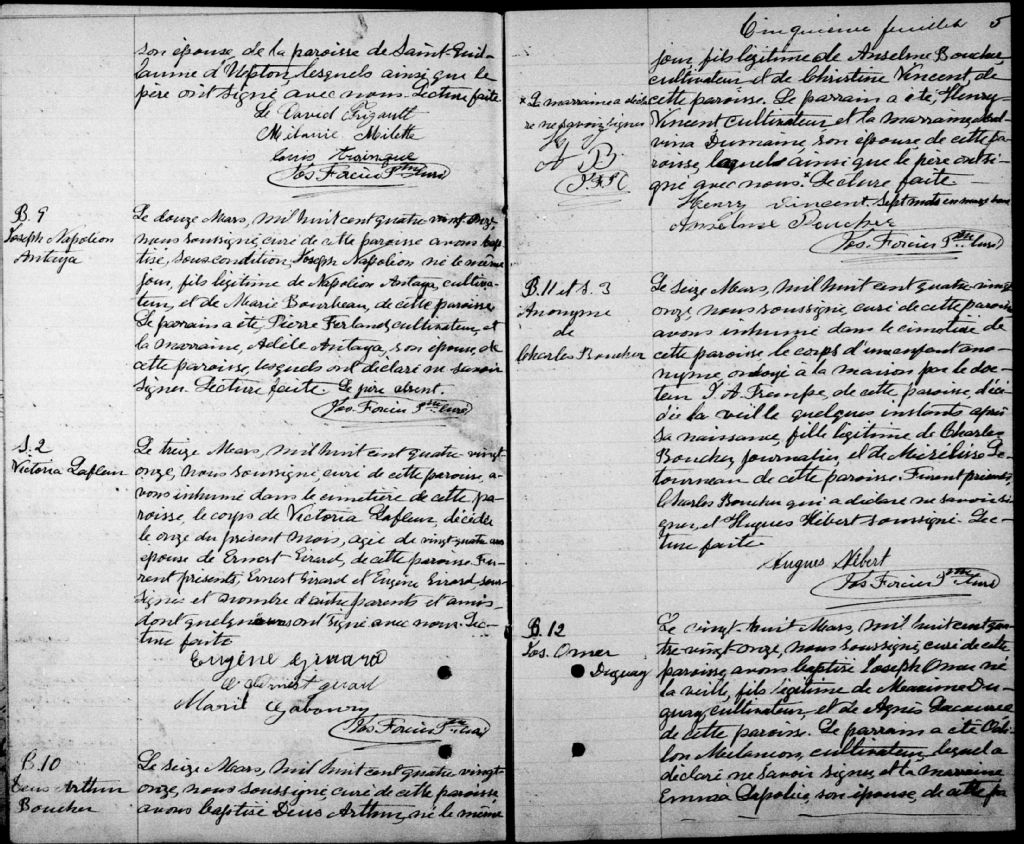 son épouse, de la paroisse de Saint-Guil-
laume d'Upton, lesquels ainsi que le
père ont signé avec nous. Lecture faite.
David Frigault
Mélanie Milette
Louis
Jos. Forcier Ptre Curé
B. 9
Joseph Napoléon
Antaya
Le douze Mars, mil huit cent quatre vingt onze,
nous soussigné, curé de cette paroisse avons bap-
tisé, sous condition, Joseph Napoléon né le même
jour, fils légitime de Napoléon Antaya, cultiva-
teur, et de Marie Bourbeau, de cette paroisse.
Le parrain a été, Pierre Ferland, cultivateur, et
la marraine, Adèle Antaya, son épouse, de
cette paroisse, lesquels ont déclaré ne savoir
signer. Lecture faite. Le père absent.
Jos. Forcier Ptre Curé
S. 2
Victoria Lafleur
Le treize Mars, mil huit cent quatre vingt-
onze, nous soussigné, curé de cette paroisse, a-
vons inhumé dans le cimetière de cette pa-
roisse, le corps de Victoria Lafleur, décédée
le onze du présent mois, agée de vingt quatre ans
épouse de Ernest Girard, de cette paroisse. Fu-
rent présents, Ernest Girard et Eugène Girard, sous-
signés et nombre d'autre parents et amis
dont quelques uns ont signé avec nous. Lec-
ture faite
Eugène Girard
Ernest Girard
Marie Gaboury
Jos. Forcier Ptre Curé
B. 10
Deus Arthur
Boucher
Le seize Mars, mil huit cent quatre vingt-
onze, nous soussigné, curé de cette paroisse,
avons baptisé Deus Arthur, né le même
Cinquième feuillet 5
jour, fils légitime de Anselme Boucher,
cultivateur et de Christine Vincent, de
cette paroisse. Le parrain a été, Henry
Vincent cultivateur, et la marraine Mal-
vina Dumaine, son épouse, de cette pa-
roisse, lesquels ainsi que le père ont si-
gné avec nous.x Lecture faite
x La marraine a décla-
ré ne savoir signer
Henry Vincent Sept mots en marge bons
Anselme Boucher
Jos. Forcier Ptre Curé
B. 11 et S. 3
Anonyme
de
Charles Boucher
Le seize Mars, mil huit cent quatre-vingt
onze, nous soussigné, curé de cette paroisse
avons inhumé dans le cimetière de
cette paroisse le corps d'un enfant ano-
nyme, ondoyé à la maison par le doc-
teur J. A. de cette paroisse, décé-
dée la veille quelques instants après
sa naissance, fille légitime de Charles
Boucher, journalier, et de Le-
tourneau de cette paroisse. Furent présents
Charles Boucher qui a déclaré ne savoir si-
gner, et Hugues Hébert soussigné. Lec-
ture faite.
Hugues Hébert
Jos. Forcier Ptre Curé
B. 12
Jos. Omer
Duguay
Le vingt-huit Mars, mil huit cent qua-
tre vingt onze, nous soussigné, curé de cette
paroisse, avons baptisé Joseph Omer né
la veille, fils légitime de Maxime Du-
guay, cultivateur, et de Agnès
de cette paroisse. Le parrain a été Odi-
lon Melançon, cultivateur, lequel a
déclaré ne savoir signer, et la marraine
Emma son épouse, de cette pa